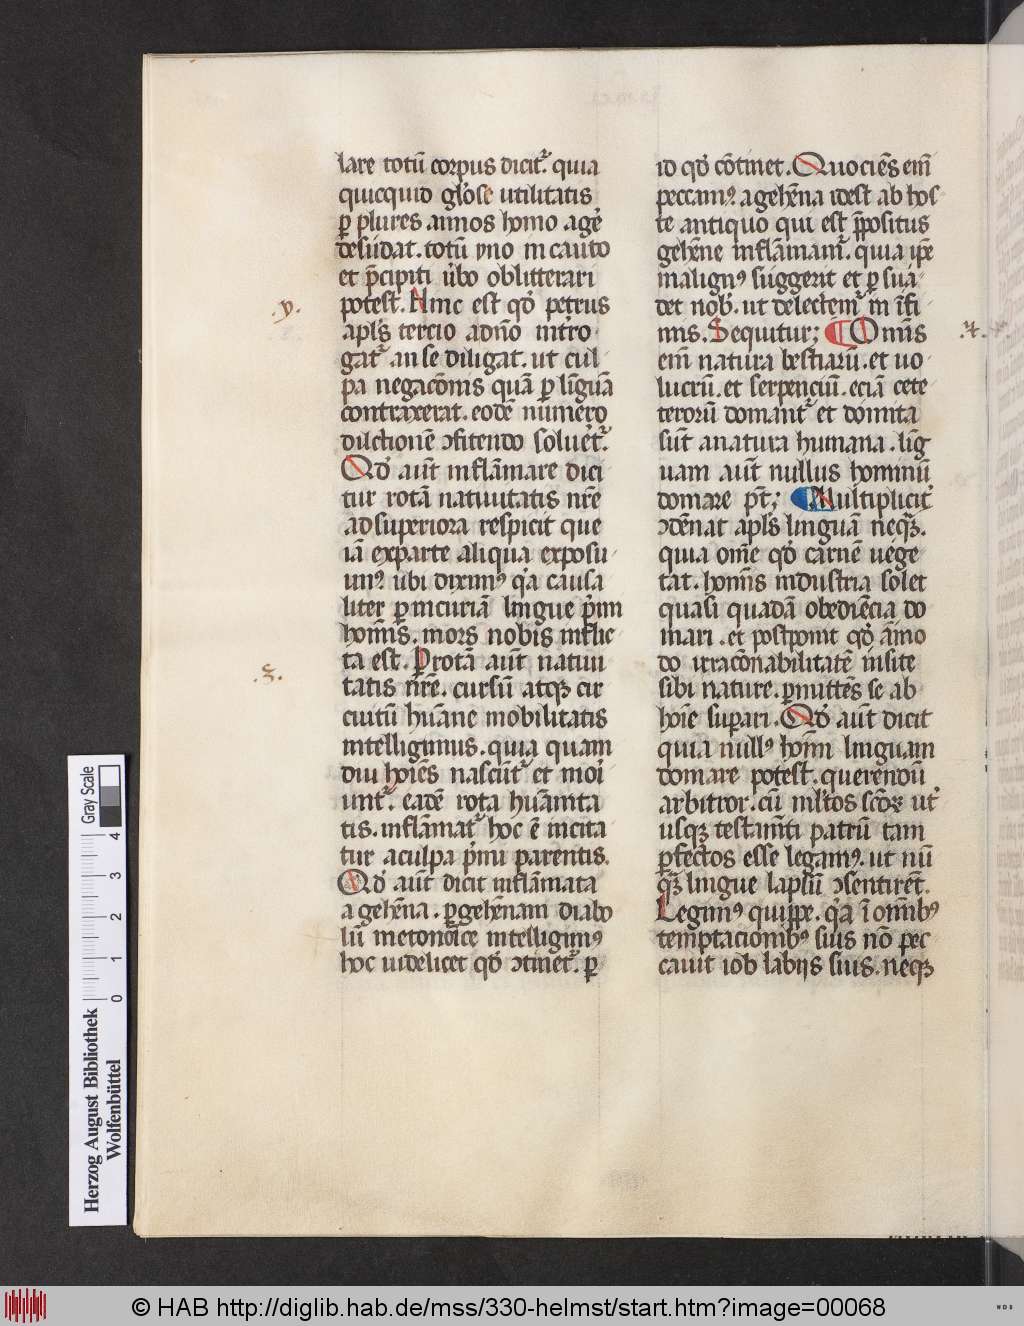 lare totū corpus dicit᷑. quia
quicquid glōse utilitatis
ꝑ plures annos homo agē
desudat. totū yno incauto
et p̄cipiti ūbo oblitterari
potest. Hinc est qd̄ petrus
.y.
apl̄s tercio a dn̄o int̄ro
gat᷑. an se diligat. ut cul
pa negacōnis quā ꝑ līguā
contraxerat. eodē numero
dilctionē ɔfitendo soluēt᷑.
Qd̄ aūt inflāmare dici
tur rotā natiuitatis nr̄e
ad superiora respicit que
iā ex parte aliqua exposu
imꝰ ubi diximꝰ qa causa
liter ꝑ incuriā lingue p̄mi
hoīnis. mors nobis inflic
ta est. Protā aūt natiui
.z.
tatis nr̄e. cursū atqꝫ cir
cuitū hūane mobilitatis
intelligimus. quia quam
diu hoīes nascūt᷑ et mori
unt᷑. eadē rota hūanita
tis. inflāmat᷑ hoc ē incita
tur a culpa p̄mi parentis.
Qd̄ aūt dicit inflāmata
a gehēna. ꝑ gehēnam diabo
lū metonōice intelligimꝰ
hoc uidelicet qd̄ ɔtinet᷑. ꝑ
id qd̄ cōtinet. Quociēs em̄
peccamꝰ. a gehēna idest ab hos
te antiquo qui est p̄positus
gehēne inflāmam᷑. quia ip̄e
malignꝰ suggerit et ꝑsua
det nob̄. ut delectem᷑ in ifi
mis. Sequitur; ¶ Omīs
em̄ natura bestiarū. et uo
lucrū. et serpenciū. eciā cete
terorū domant᷑ et domita
sūt a natura humana. līg
uam aūt nullus hominū
domare pt̄; ¶ Multiplicit̄
ɔdēnat apl̄s linguā neqꝫ.
quia om̄e qd̄ carnē uege
tat. hoīnis industria solet
quasi quadā obediēcia do
mari. et postponit qd̄ āmo
do irracōnabilitatē insite
sibi nature. ꝑmittēs se ab
hoīe supari. Qd̄ aūt dicit
quia nullꝰ hom̄i linguam
domare potest. querendū
arbitror. cū ml̄tos sc̄oꝝ ut
usqꝫ testam̄ti patrū tam
ꝑfectos esse legamꝰ. ut nū
qꝫ lingue lapsū ɔsentirēt.
Legimꝰ quippe. qa ī omībꝰ
temptacionibꝰ suis nō pec
cauit iob labijs suis. neqꝫ
Herzog August Bibliothek
Wolfenbüttel
0 1 2 3 4
Gray Scale
© HAB http://diglib.hab.de/mss/330-helmst/start.htm?image=00068